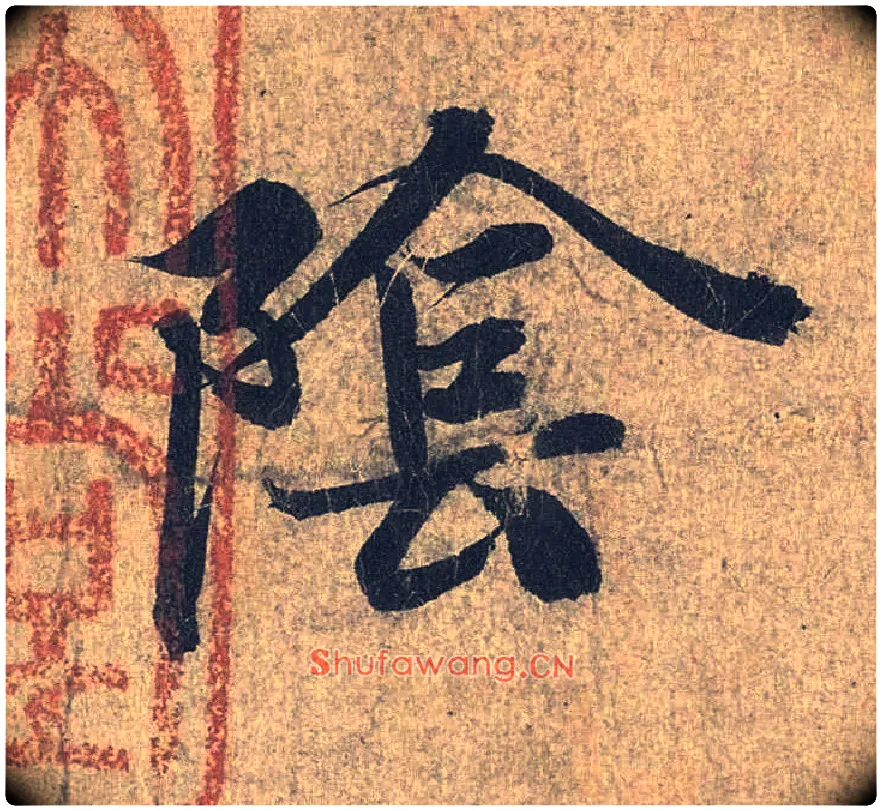 陰
Shufawang.CN